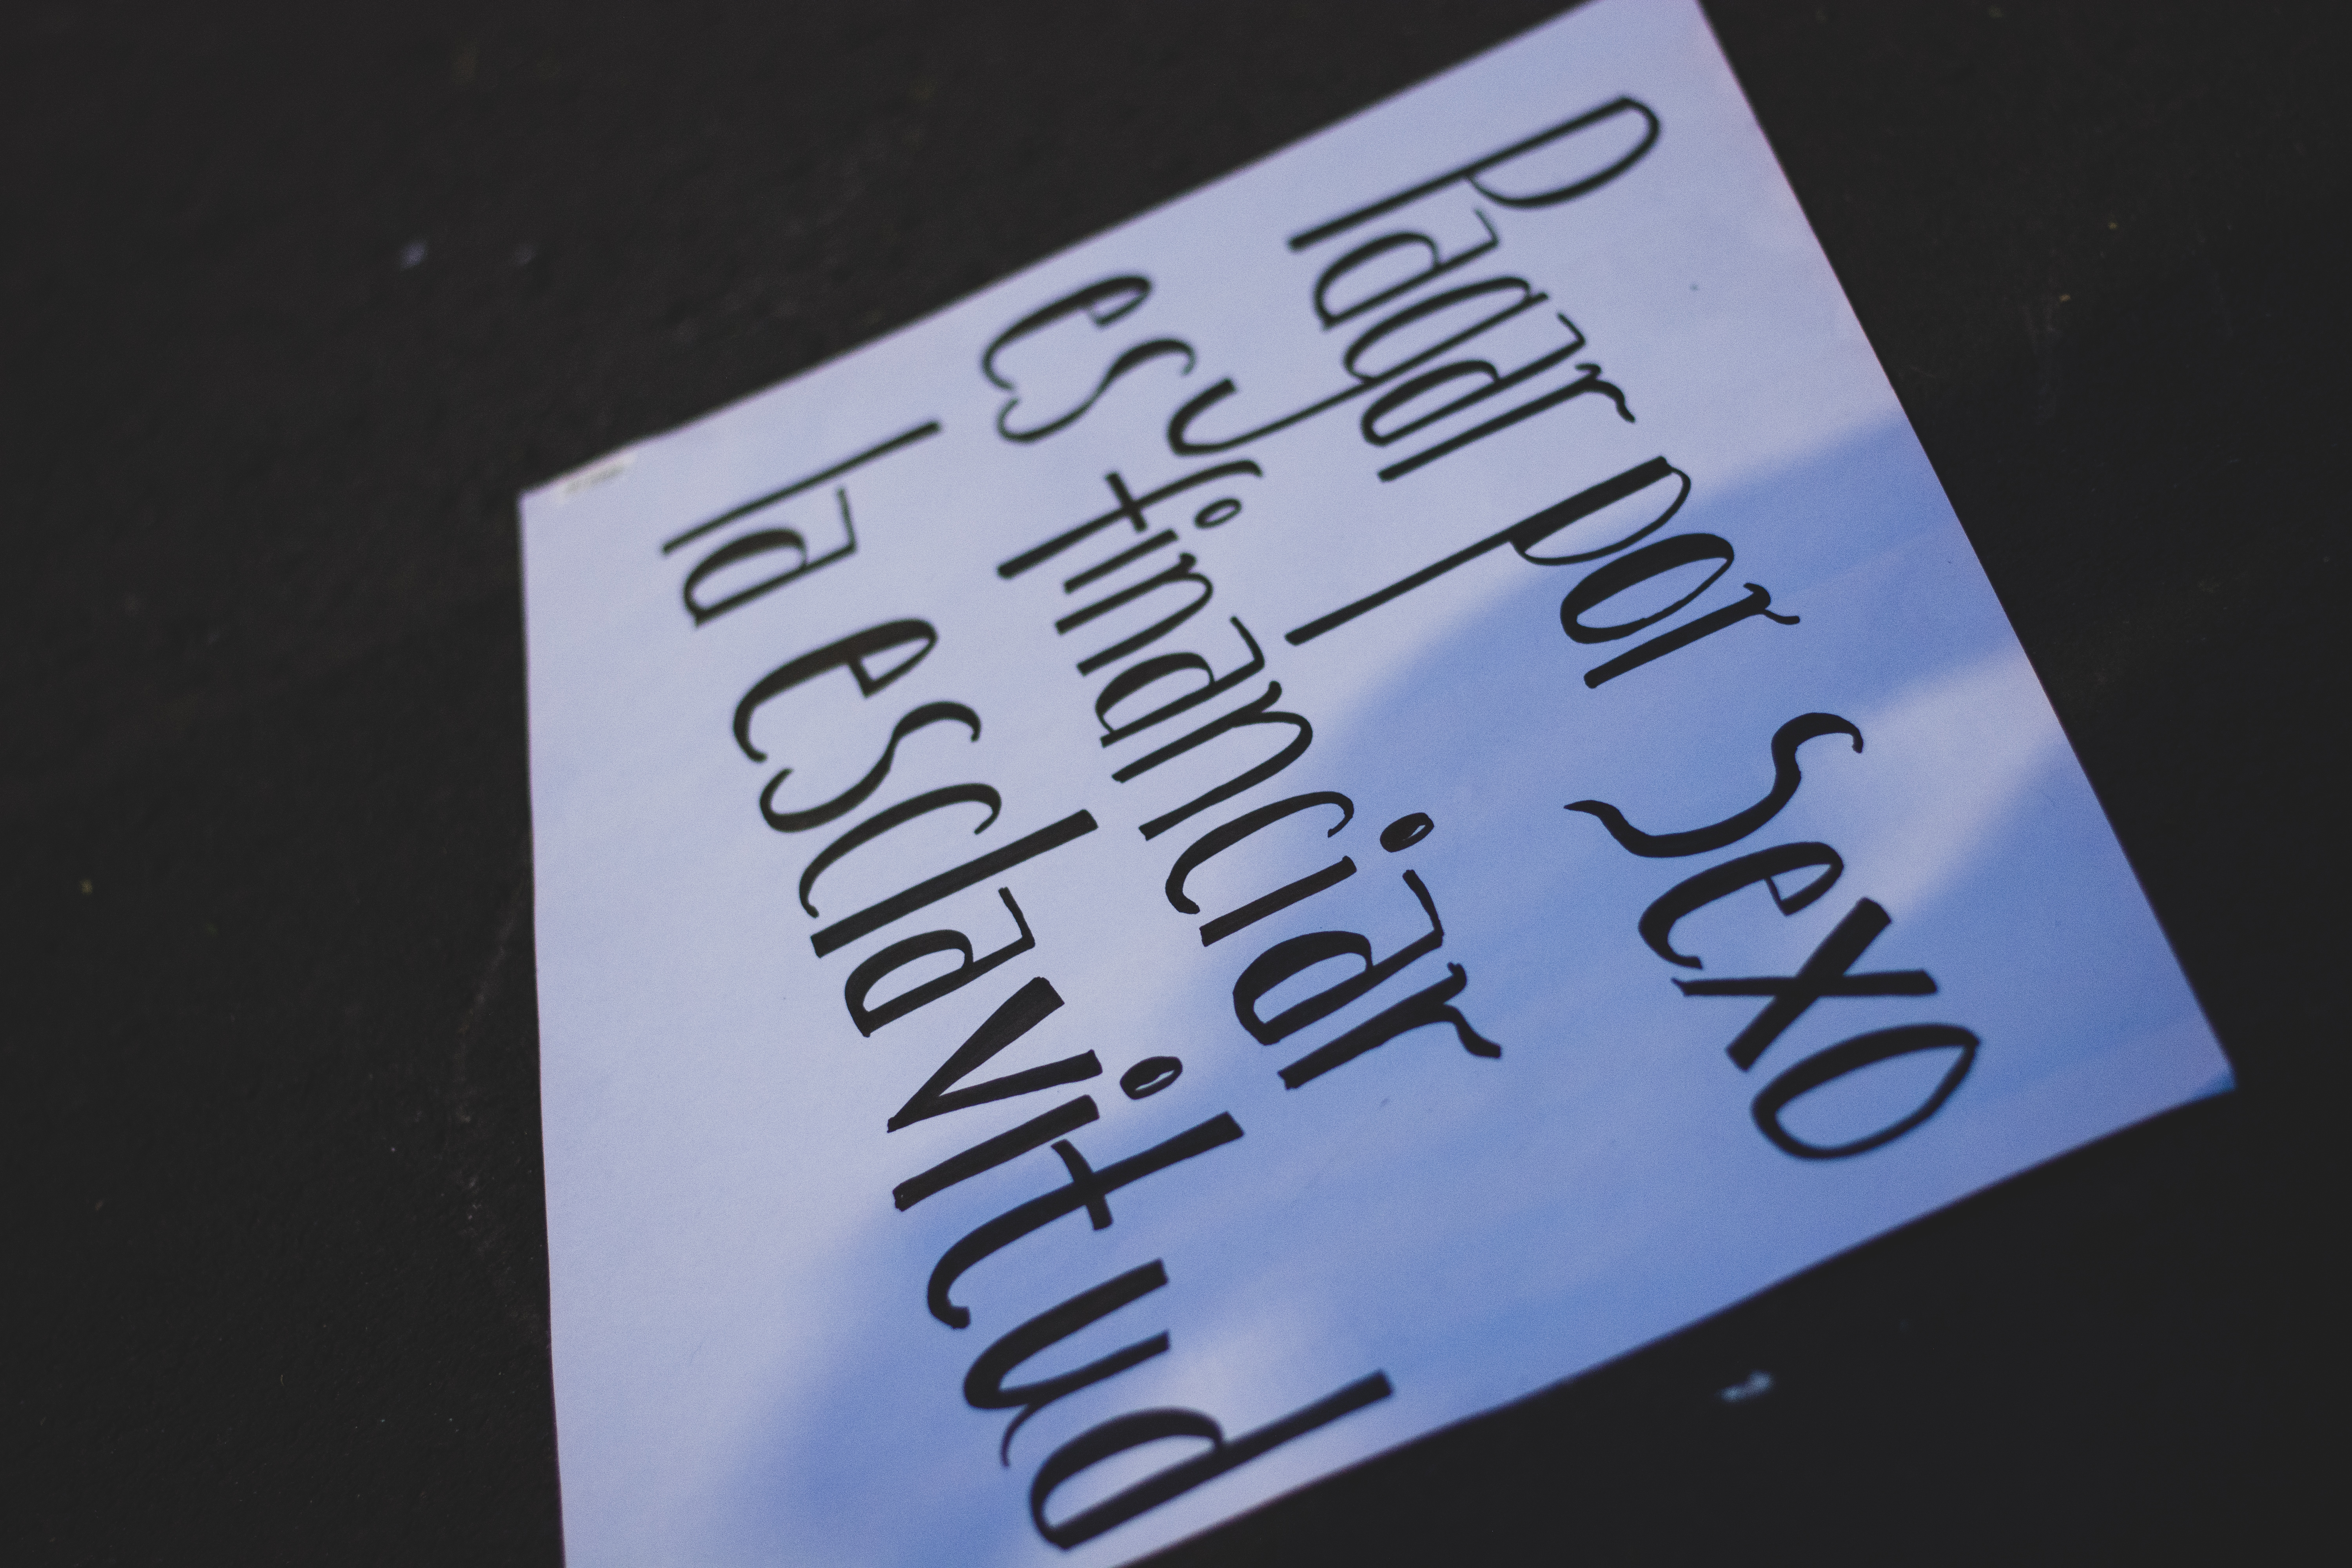 Pagar por sexo
es financiar
la esclavitud